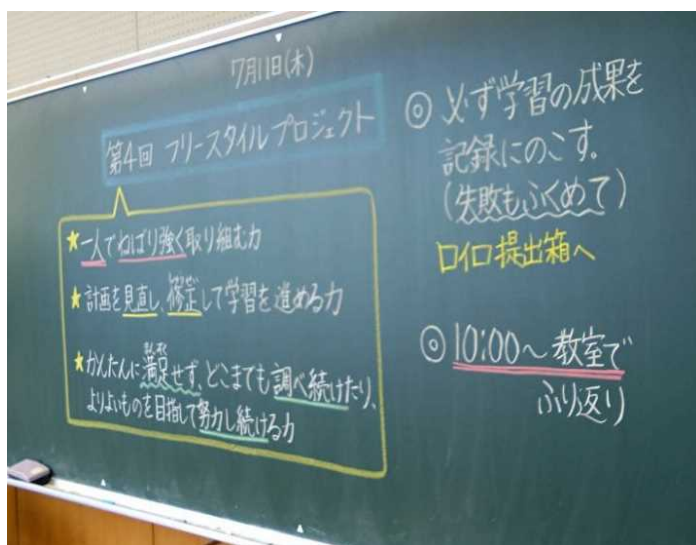 7月11日(木)
第4回 フリースタイルプロジェクト
★一人でねばり強く取り組む力
★計画を見直し、修正して学習を進める力
★かんたんに満足せず、どこまでも調べ続けたり、
よりよいものを目指して努力し続ける力
◎必ず学習の成果を
記録にのこす。
(失敗もふくめて)
ロイロ提出箱へ
◎10:00～教室で
ふり返り